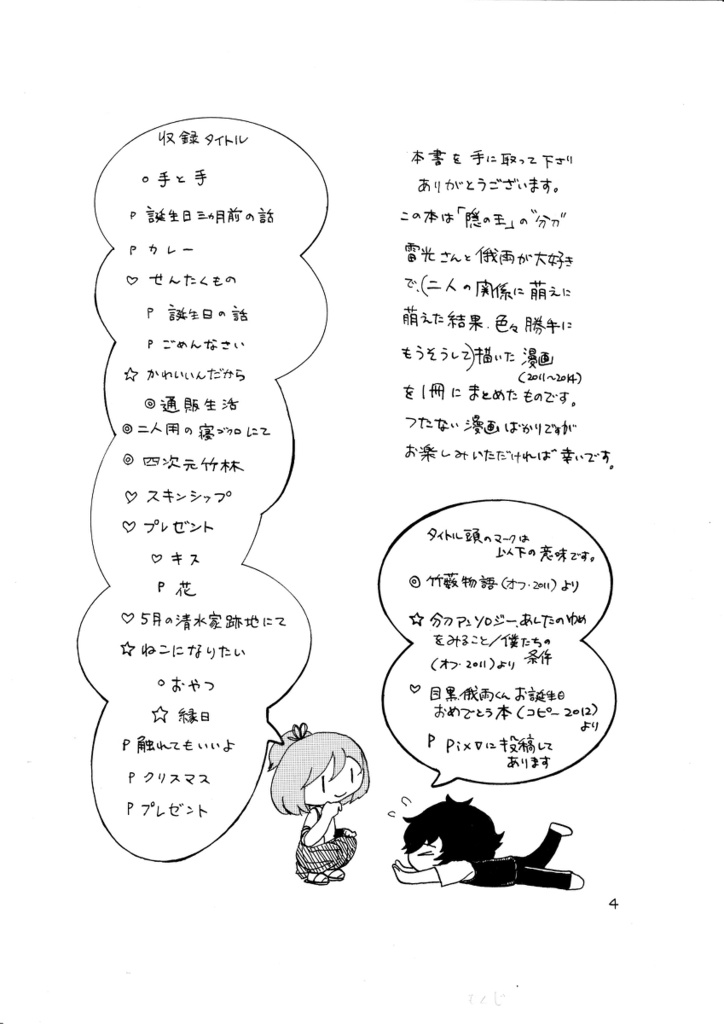 本書を手に取って下さり
ありがとうございます。
この本は「隠の王」の"分刀"
雷光さんと俄雨が大好き
で、(二人の関係に萌えに
萌えた結果、色々勝手に
もうそうして)描いた漫画
(2011〜2014)
を1冊にまとめたものです。
つたない漫画ばかりですが
お楽しみいただければ幸いです。
収録タイトル
○手と手
P 誕生日三ヵ月前の話
P カレー
♡ せんたくもの
P 誕生日の話
P ごめんなさい
☆ かわいいんだから
◎通販生活
◎二人用の寝ブクロにて
◎ 四次元竹林
♡ スキンシップ
♡ プレゼント
♡ キス
P 花
♡ 5月の清水家跡地にて
☆ ねこになりたい
○おやつ
☆ 縁日
P 触れてもいいよ
P クリスマス
P プレゼント
タイトル頭のマークは
以下の意味です。
◎ 竹藪物語(オフ・2011)より
☆ 分刀アンソロジー、あしたのゆめ
をみること/僕たちの
条件
(オフ・2011)より
♡ 目黒俄雨くんお誕生日
おめでとう本(コピー2012)
より
P pixivに投稿して
あります
4